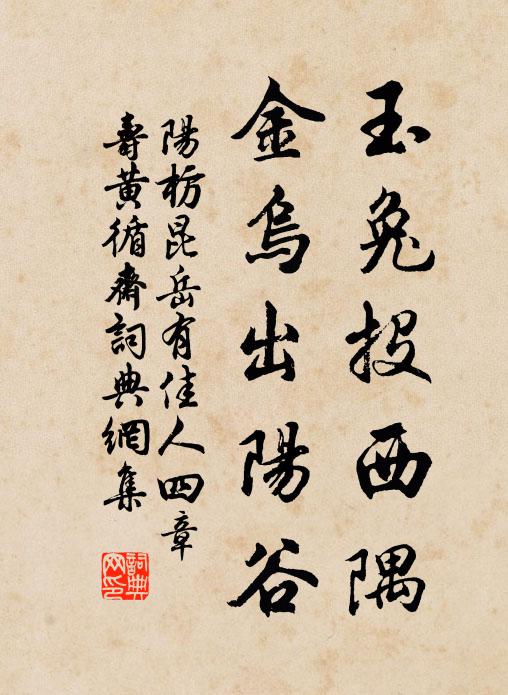 玉兔投西隅
金烏出陽谷
陽枋昆岳有佳人四章
壽黃循齋詞典網集
詞典
网印